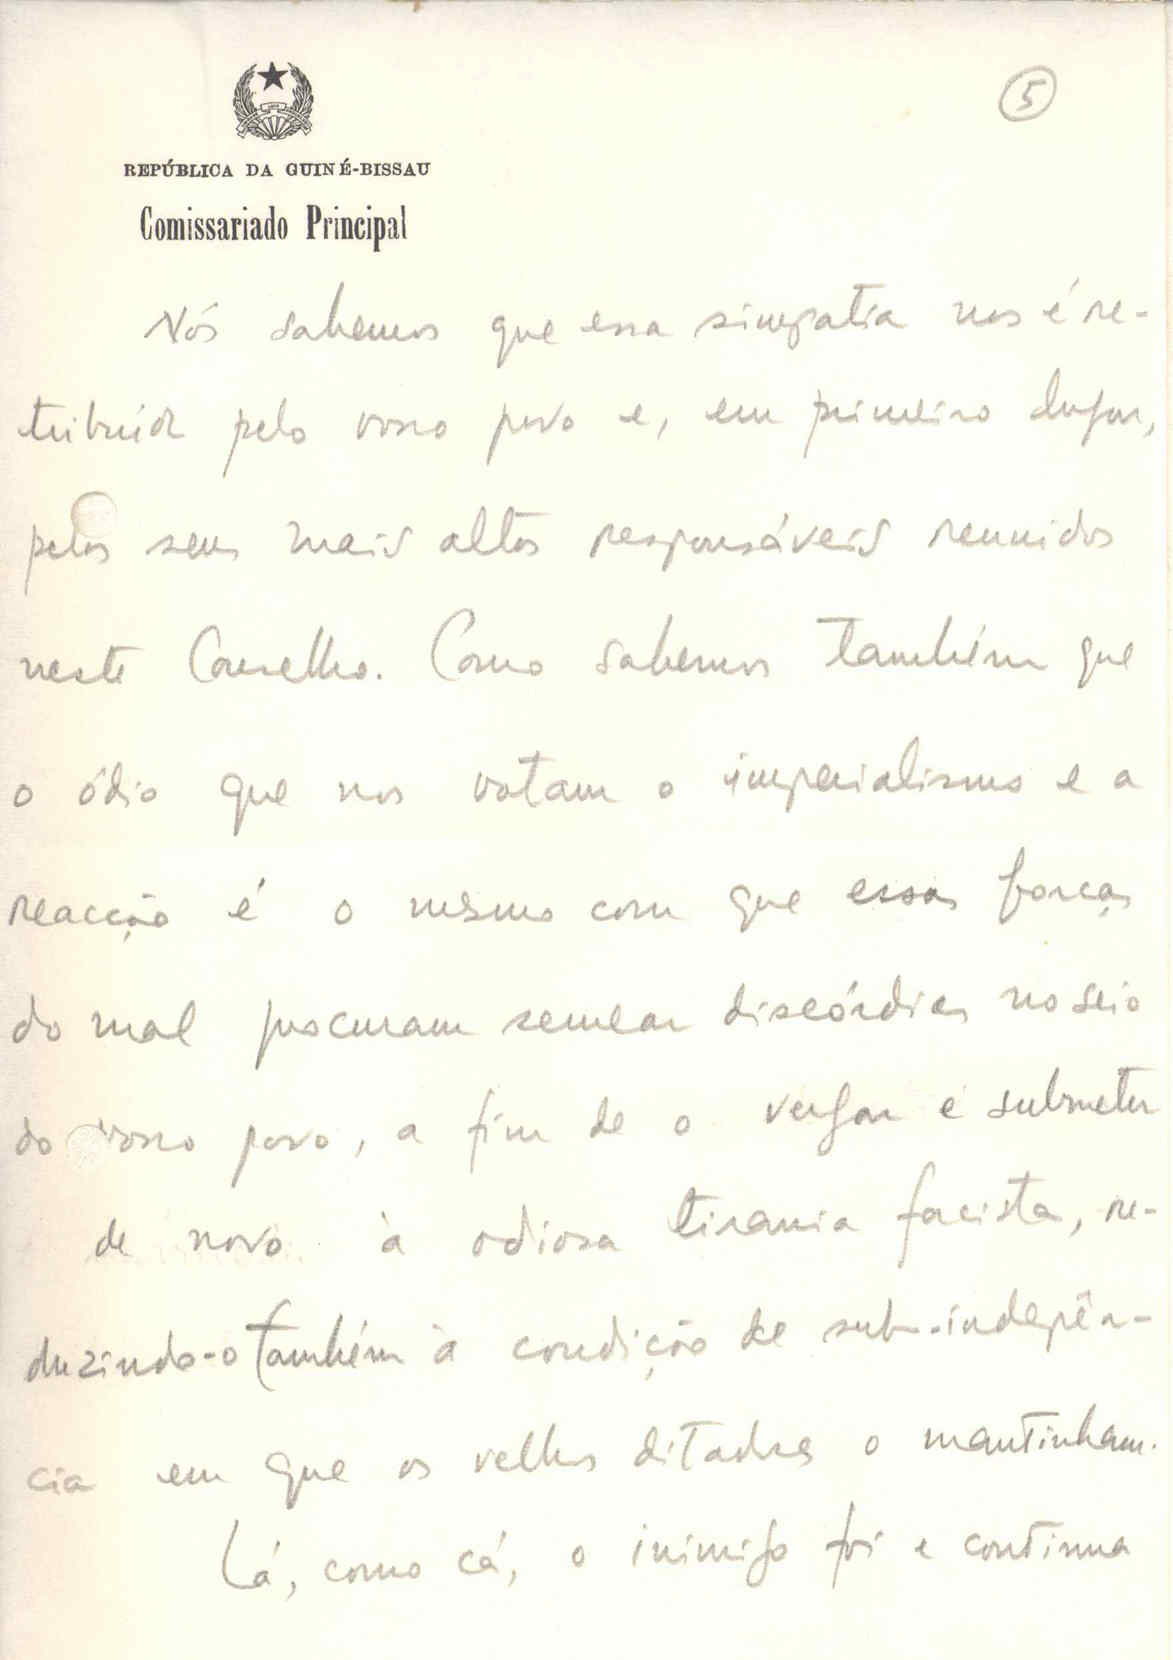 5
REPÚBLICA DA GUINÉ-BISSAU
Comissariado Principal
Nós sabemos que essa simpatia nos é re-
tribuída pelo vosso povo e, em primeiro lugar,
pelos seus mais altos responsáveis reunidos
neste Conselho. Como sabemos também que
o ódio que nos votam o imperialismo e a
reacção é o mesmo com que essas forças
do mal procuram semear discórdias no seio
do vosso povo, a fim de o vergar e submeter
de novo à odiosa tirania facista, re-
duzindo-o também à condição de sub-indepên-
cia em que os velhos ditadores o mantinham.
Lá, como cá, o inimigo foi e continua